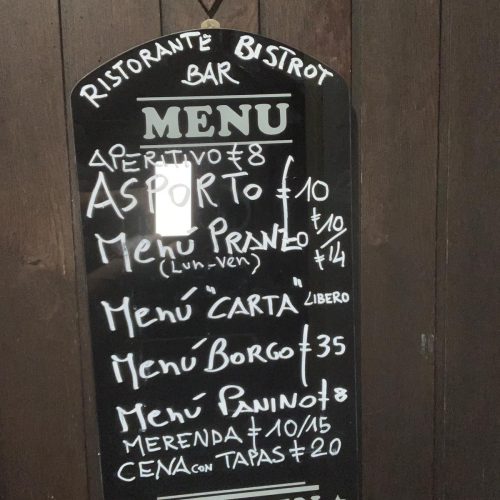 RISTORANTE BISTROT
BAR
MENU
APERITIVO €8
ASPORTO €10
Menú PRANZO €10/€14
(Lun-Ven)
Menú "CARTA" LIBERO
Menú BORGO €35
Menú PANINO €8
MERENDA €10/15
CENA con TAPAS €20